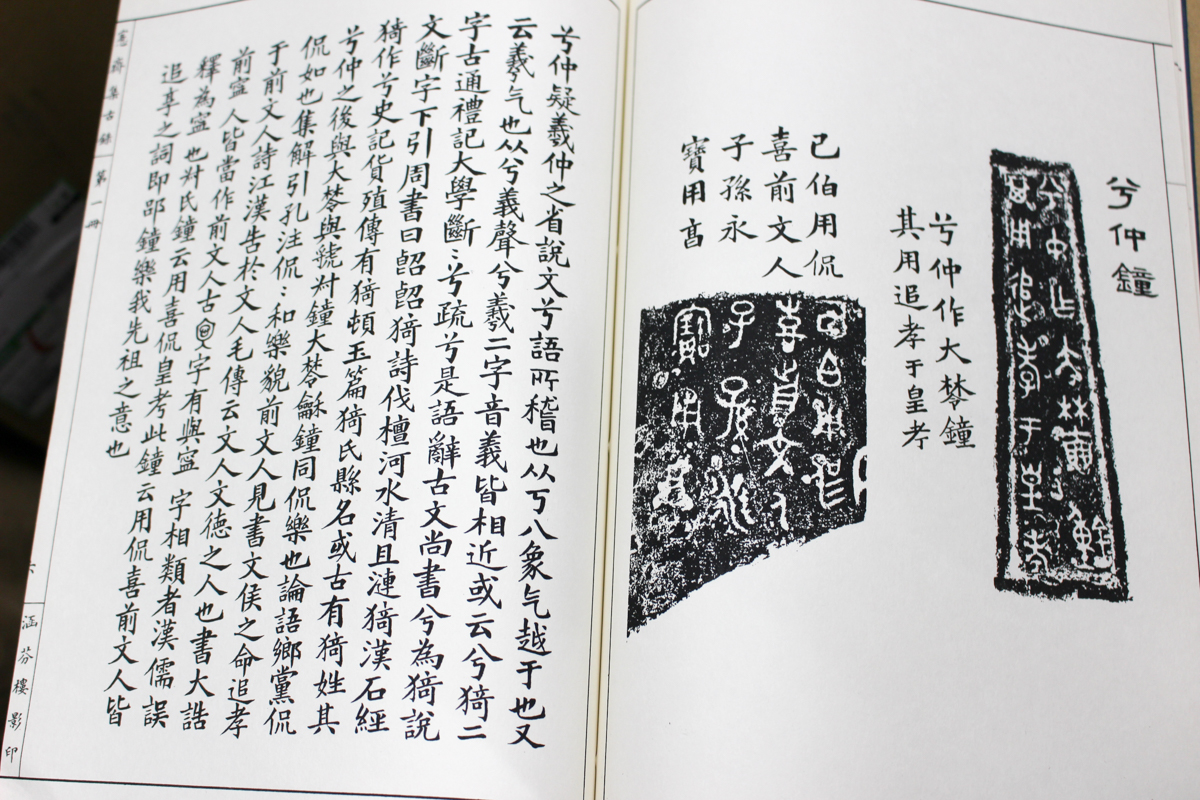 兮仲鐘
兮仲作大棽鐘
其用追孝于皇考
己伯用侃
喜前文人
子孫永
寶用亯
兮仲疑羲仲之省說文兮語所稽也从丂八象气越于也又
云羲气也从兮義聲兮羲二字音義皆相近或云兮猗二
字古通禮記大學斷斷兮疏兮是語辭古文尚書兮為猗說
文斷字下引周書曰𠸿𠸿猗詩伐檀河水清且漣猗漢石經
猗作兮史記貨殖傳有猗頓玉篇猗氏縣名或古有猗姓其
兮仲之後與大棽與虢叔鐘大棽龢鐘同侃樂也論語鄉黨侃
侃如也集解引孔注侃侃和樂貌前文人見書文侯之命追孝
于前文人詩江漢告於文人毛傳云文人文德之人也書大誥
前寍人皆當作前文人古文字有與寍字相類者漢儒誤
釋為寍也叔氏鐘云用喜侃皇考此鐘云用侃喜前文人皆
追享之詞即郘鐘樂我先祖之意也
愙齋集古錄
第一冊
六
涵芬樓影印